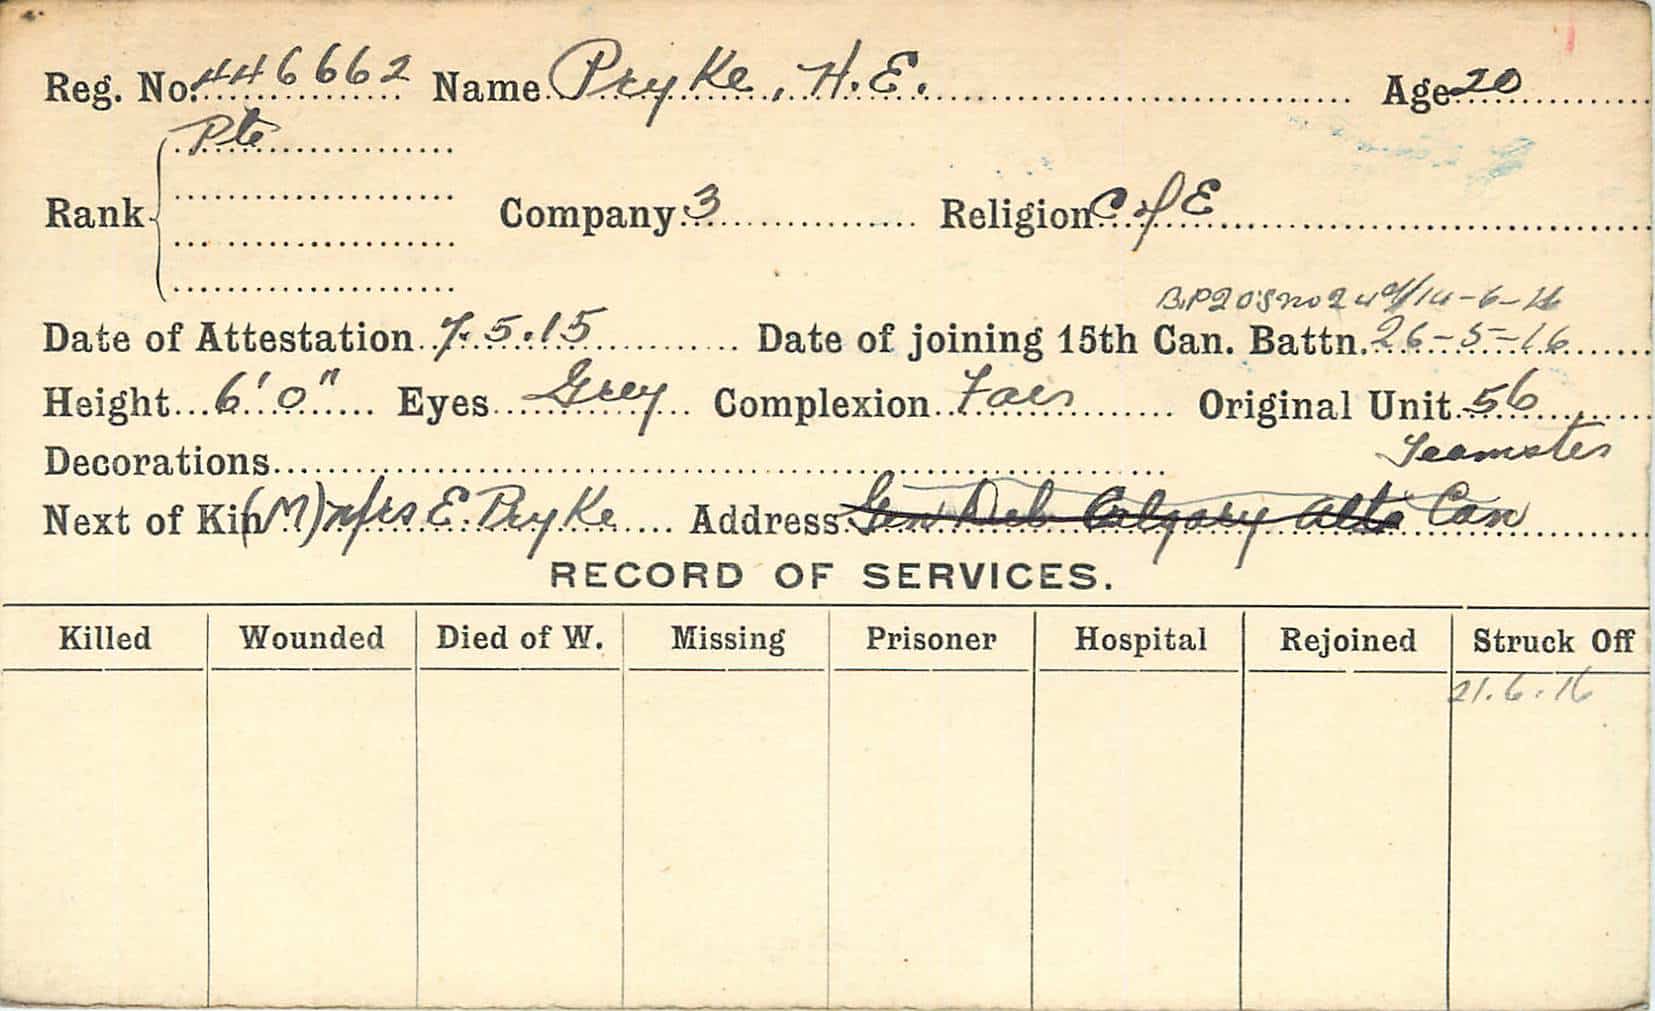 Reg. No. 446662 Name Pryke, H.E. Age 20
Pte
Rank Company 3 Religion C of E
14-6-16
Date of Attestation 7.5.15 Date of joining 15th Can. Battn. 26-5-16
Height 6'0" Eyes Grey Complexion Fair Original Unit 56
Decorations Teamster
Next of Kin (M) Mrs E. Pryke Address Gen Del. Calgary Alta Can
RECORD OF SERVICES.
Killed Wounded Died of W. Missing Prisoner Hospital Rejoined Struck Off
21.6.16